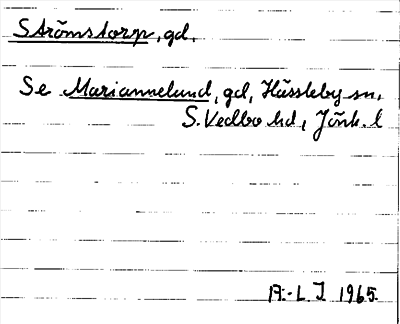 Strömstorp, gd,
Se Mariannelund, gd, Hässleby sn,
S. Vedbo hd, Jönk. l
A.-L J 1965.